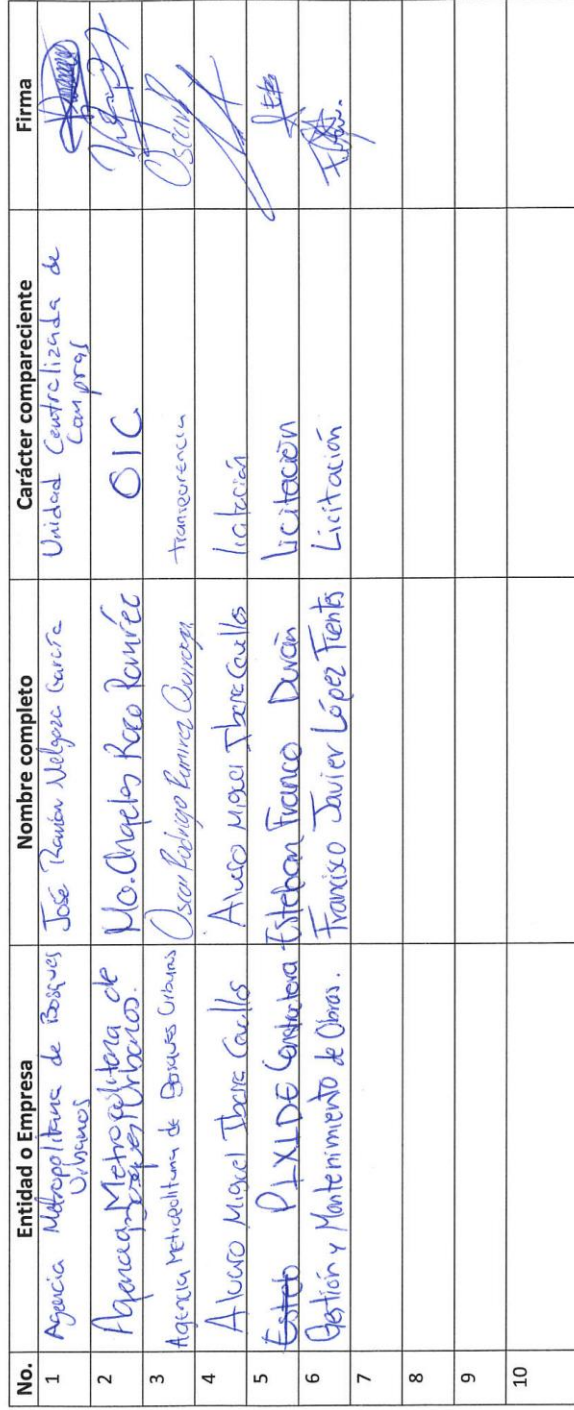 No. Entidad o Empresa Nombre completo Carácter compareciente Firma
1 Agencia Metropolitana de Bosques José Ramón García Unidad Centralizada de
Urbanos Compras
2 Agencia Metropolitana de Ma. Angeles Ramírez OIC
Bosques Urbanos.
3 Agencia Metropolitana de Bosques Urbanos Oscar Rodrigo Ramirez transparencia Oscar
4 Alvaro Miguel Ibarra Alvaro Miguel Ibarra licitación
5 PIXIDE Constructora Esteban Franco Durán Licitación
6 Gestión y Mantenimiento de Obras. Francisco Javier López Fuentes Licitación
7
8
9
10